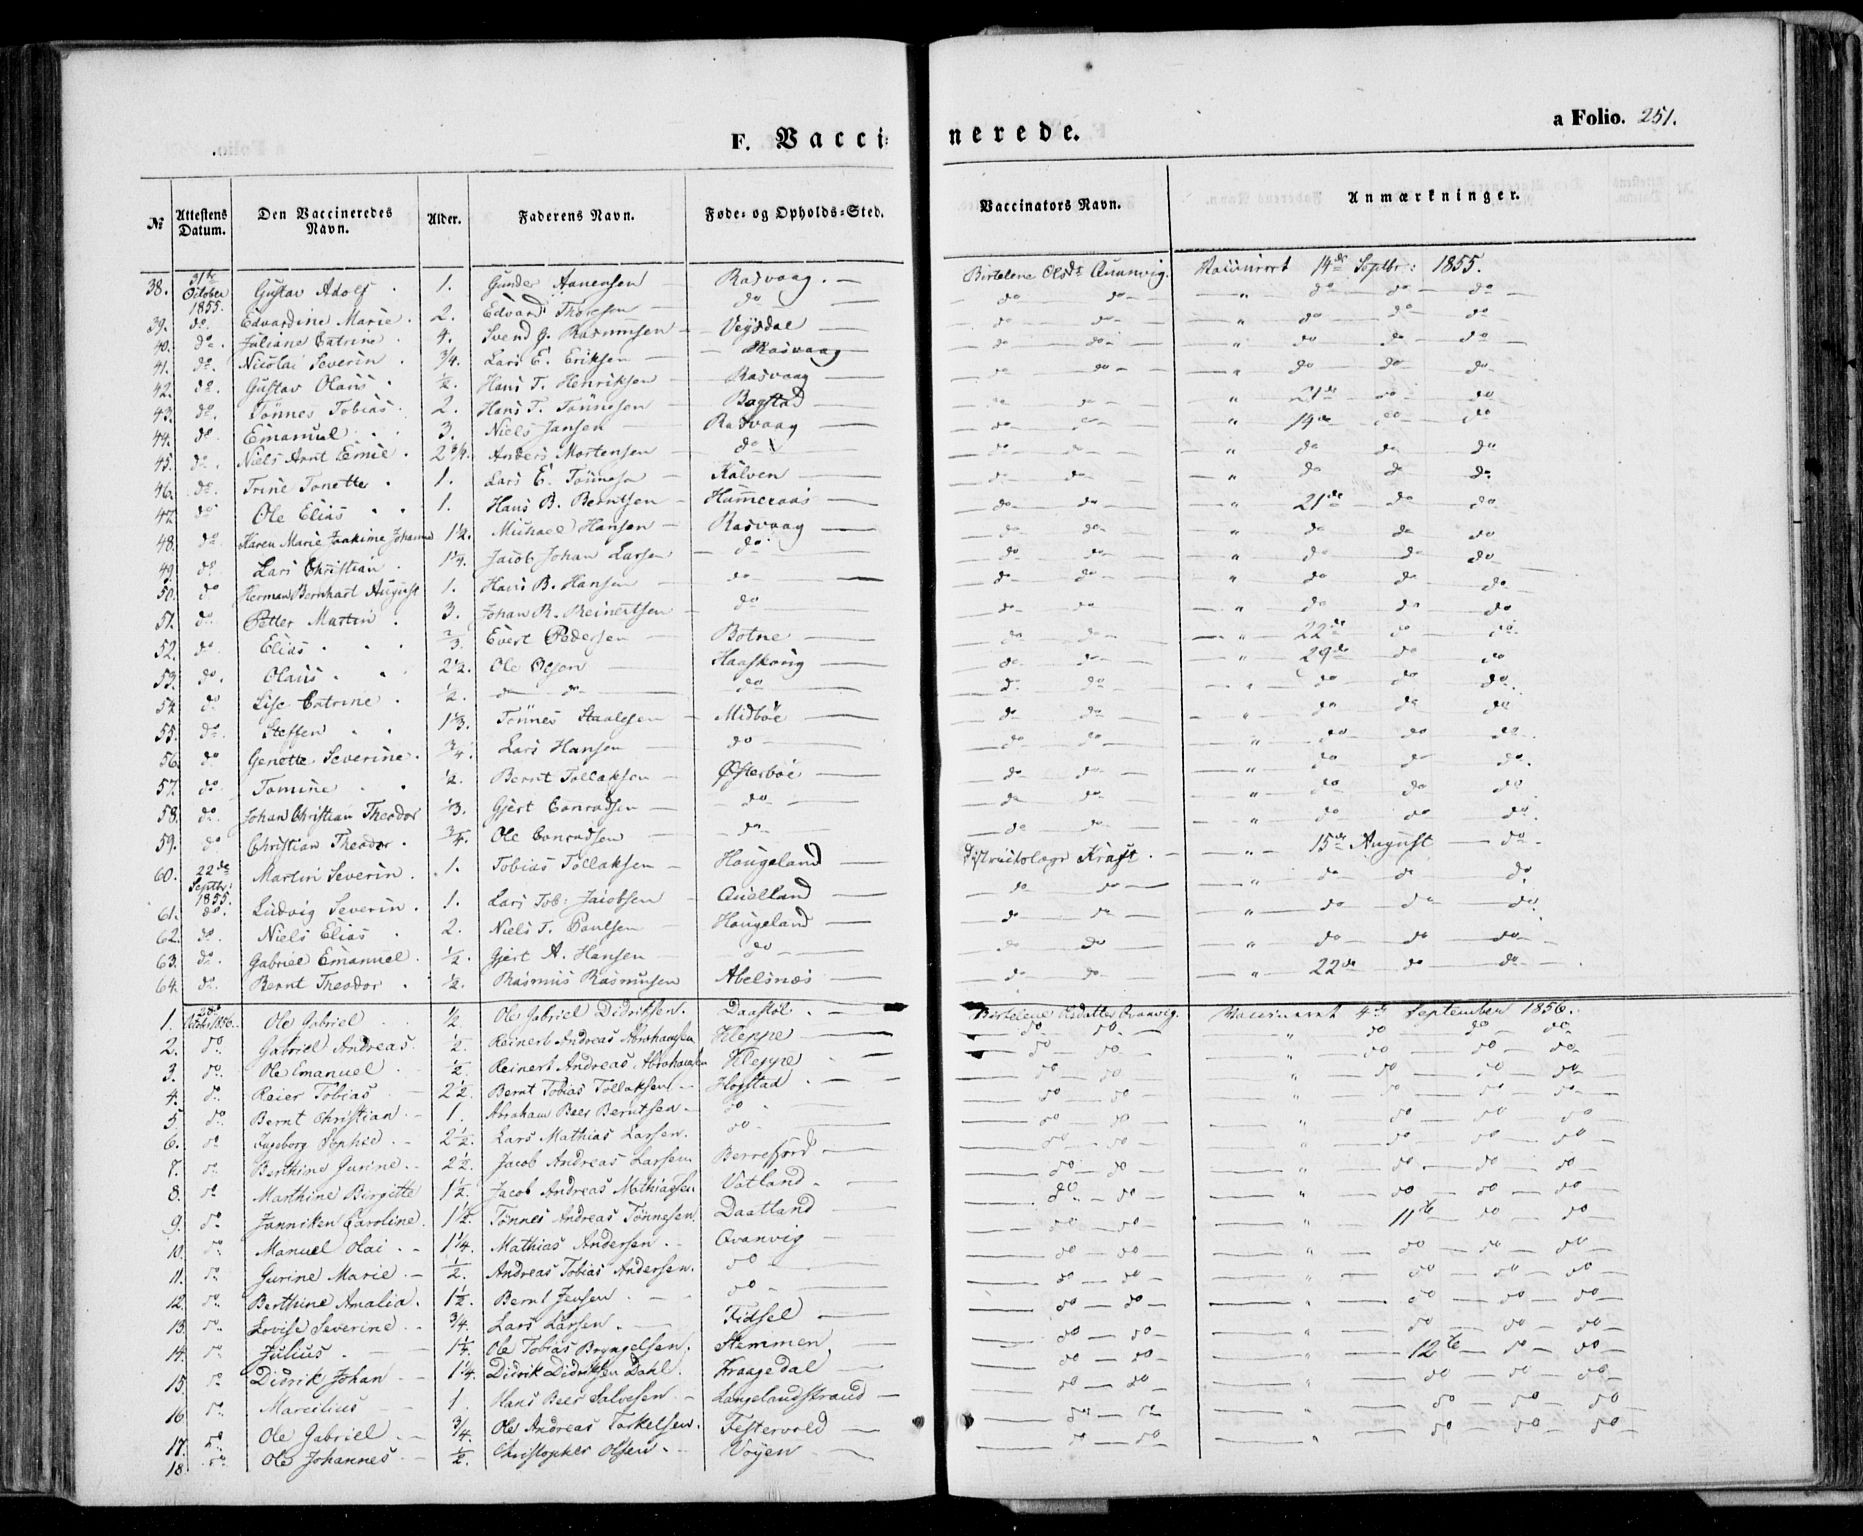 a Folio. 251.
F. Vaccinerede.
№ | Attestens Datum. | Den Vaccineredes Navn. | Alder. | Faderens Navn. | Føde- og Opholds-Sted. | Vaccinators Navn. | Anmærkninger.
38. | 31te October 1855. | Gustav Adolf | 1. | Gunder Aanensen | Rasvaag. | Birtelene Olsdt Quanvig. | Vaccineret 14de Septbr: 1855.
39. | do. | Edvardine Marie | 2. | Edvard Thorsen | do | do do | " do do do
40. | do. | Juliane Catrine | 4. | Svend J. Rasmussen | Veisdal | do do | " do do do
41. | do. | Nicolai Severin | 3/4. | Lars E. Eriksen | Rasvaag | do do | " do do do
42. | do | Gustav Olaus | 1/2. | Hans T. Henriksen | Rasvaag | do do | " do do do
43. | do. | Tönnes Tobias | 2. | Hans T. Tönnesen | Bogstad | do do | " 21de do do
44. | do. | Emanuel | 3. | Niels Jansen | Rasvaag | do do | " 14de do do
45. | do. | Niels Arnt Cornie | 2 3/4. | Anders Mortensen | do | do do | " do do do
46. | do. | Trine Tonette | 1. | Lars E. Tönnesen | Kalven | do do | " do do do
47. | do | Ole Elias | 1. | Hans B. Berntsen | Hummeraas | do do | " 21de do do
48. | do. | Karen Marie Joakime Johanne | 1 1/2. | Michael Hansen | Rasvaag | do do | " do do do
49. | do | Lars Christian | 1 1/4. | Jacob Johan Larsen | do | do do | " do do do
50. | do | Herman Bernhart August | 1. | Hans B. Hansen | do | do do | " do do do
51. | do. | Petter Martin | 3. | Johan R. Reinertsen | do | do do | " do do do
52. | do | Elias | 2/3. | Evert Pedersen | Botne | do do | " 22de do do
53. | do. | Olaus | 2 1/2. | Ole Olsen | Haaskoug | do do | " 29de do do
54. | do | Lise Catrine | 1/2. | do | do | do do | " do do do
55. | do. | Steffen | 1 1/3. | Tönnes Staalesen | Midbøe | do do | " do do do
56. | do | Genette Severine | 3/4. | Lars Hansen | do | do do | " do do do
57. | do | Tomine | 1/2. | Bernt Tollaksen | Østerbøe | do do | " do do do
58. | do. | Johan Christian Theodor | 1/3. | Gjert Conradsen | do | do do | " do do do
59. | do | Christian Theodor | 3/4. | Ole Conradsen | do | do do | " do do do
60. | 22de Septbr: 1855. | Martin Severin | 1. | Tobias Tollaksen | Hougeland | Districtslæge Kraft. | " 15de August do
61. | do. | Ludvig Severin | 1. | Lars Tob: Jacobsen | Quelland | do do | " do do do
62. | do. | Niels Elias | 2. | Niels T. Paulsen | Hougeland | do do | " do do do
63. | do. | Gabriel Emanuel | 1/2. | Gjert A. Hansen | do | do do | " do do do
64. | do. | Bernt Theodor | 1/2. | Rasmus Rasmussen | Abelsnæs | do do | " 22de do do
1. | Octobr 1856. | Ole Gabriel | 1/2 | Ole Gabriel Didriksen. | Daastöl | Birtelene Olsdatter Qvanvig. | Vaccineret 4de September 1856.
2. | do. | Gabriel Andreas | 1/2. | Reinert Andreas Abrahamsen | Kleppe | do do | " do do do
3. | do. | Ole Emanuel | 1/2 | Reinert Andreas Abrahamsen | Kleppe | do do | " do do do
4. | do. | Reier Tobias | 2 1/2. | Bernt Tobias Tollaksen | Hogstad | do do | " do do do
5. | do | Bernt Christian | 1. | Abraham Beer Berntsen | do | do do | " do do do
6. | do | Ingeborg Sophie | 2 1/2. | Lars Mathias Larsen. | do | do do | " do do do
7. | do. | Berthine Gurine | 2 1/2. | Jacob Andreas Larsen | Berrefjord | do do | " do do do
8. | do | Marthine Birgitte | 1 1/2. | Jacob Andreas Mathiasen | Vatland | do do | " do do do
9. | do | Janniken Caroline. | 1 1/2. | Tönnes Andreas Tönnesen. | Daatland | do do | " 11te do do
10. | do | Manuel Olai | 1 1/4. | Mathias Andersen | Qvanvig | do do | " do do do
11. | do | Gurine Marie | 1/2. | Andreas Tobias Andersen. | do | do do | " do do do
12. | do. | Berthine Amalia. | 1 1/2. | Bernt Jensen | do | do do | " do do do
13. | do. | Lovise Severine | 3/4. | Lars Larsen | Fidsel | do do | " do do do
14. | do | Julius | 1 1/2. | Ole Tobias Bryngelsen. | Stemmen. | do do | " 12te do do
15. | do | Didrik Johan | 1 1/4. | Didrik Didriksen Dahl. | Kraagedal | do do | " do do do
16. | do | Marcilius | 1. | Hans Beer Salvesen | Langelandstrand | do do | " do do do
17. | do | Ole Gabriel | 3/4. | Ole Andreas Torkelsen. | Festervold | do do | " do do do
18. | do | Ole Johannes | 1/2. | Christopher Olsen | Voyen | do do | "